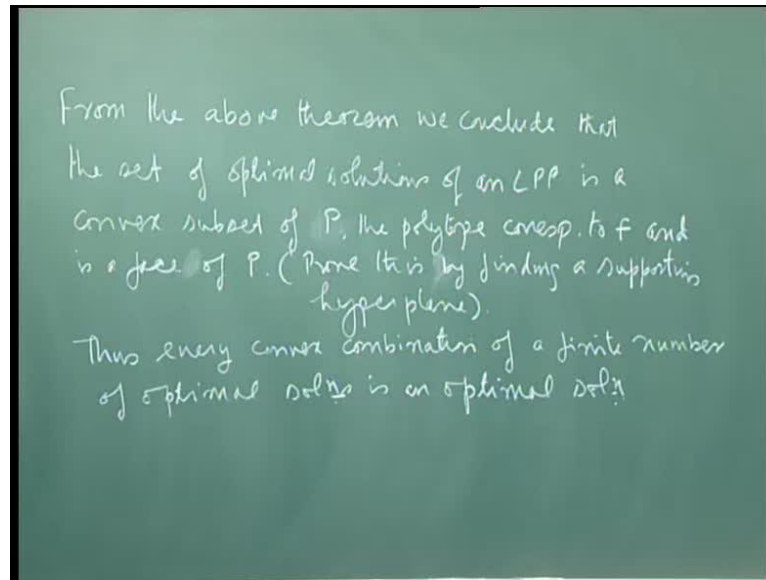 From the above theorem we conclude that
the set of optimal solutions of an LPP is a
convex subset of P, the polytope corresp. to f and
is a face of P. (Prove this by finding a supporting
hyperplane).
Thus every convex combination of a finite number
of optimal solns is an optimal soln